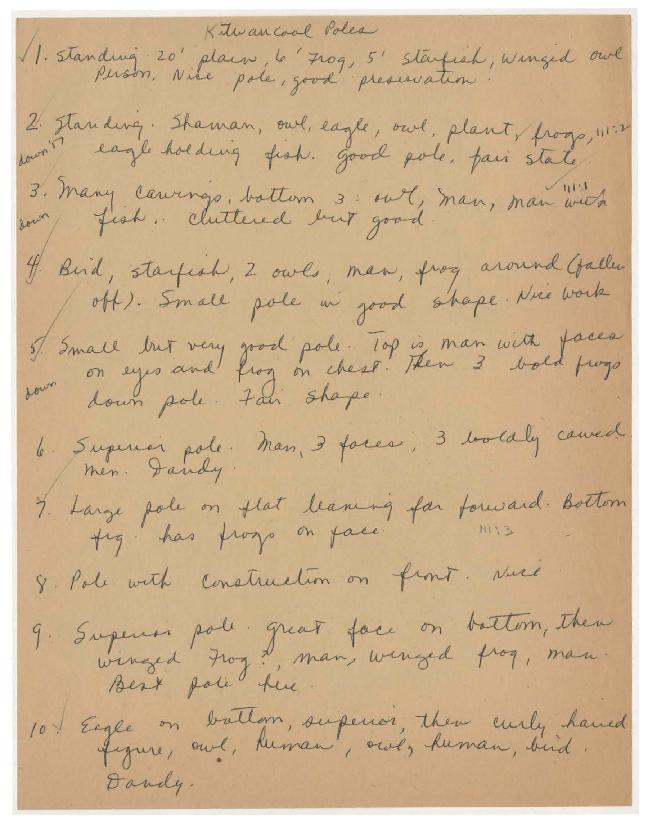 Kitwancool Poles
1. Standing 20' plain, 6' Frog, 5' starfish, winged owl
Person. Nice pole, good preservation.
2. Standing. Shaman, owl, eagle, owl, plant, frogs, 111:2
down '57 eagle holding fish. Good pole, fair state
3. Many carvings, bottom 3: owl, man, man with 111:1
down fish. Cluttered but good.
4. Bird, starfish, 2 owls, man, frog around (fallen
off). Small pole in good shape. Nice work
5. Small but very good pole. Top is man with faces
on eyes and frog on chest. Then 3 bold frogs
down down pole. Fair shape.
6 Superior pole. Man, 3 faces, 3 boldly carved
men. Dandy.
7. Large pole on flat leaning far forward. Bottom
fig. has frogs on face. 111:3
8. Pole with construction on front. Nice
9. Superior pole. Great face on bottom, then
winged Frog?, man, winged frog, man.
Best pole here.
10. Eagle on bottom, superior, then curly haired
figure, owl, human, owl, human, bird.
Dandy.